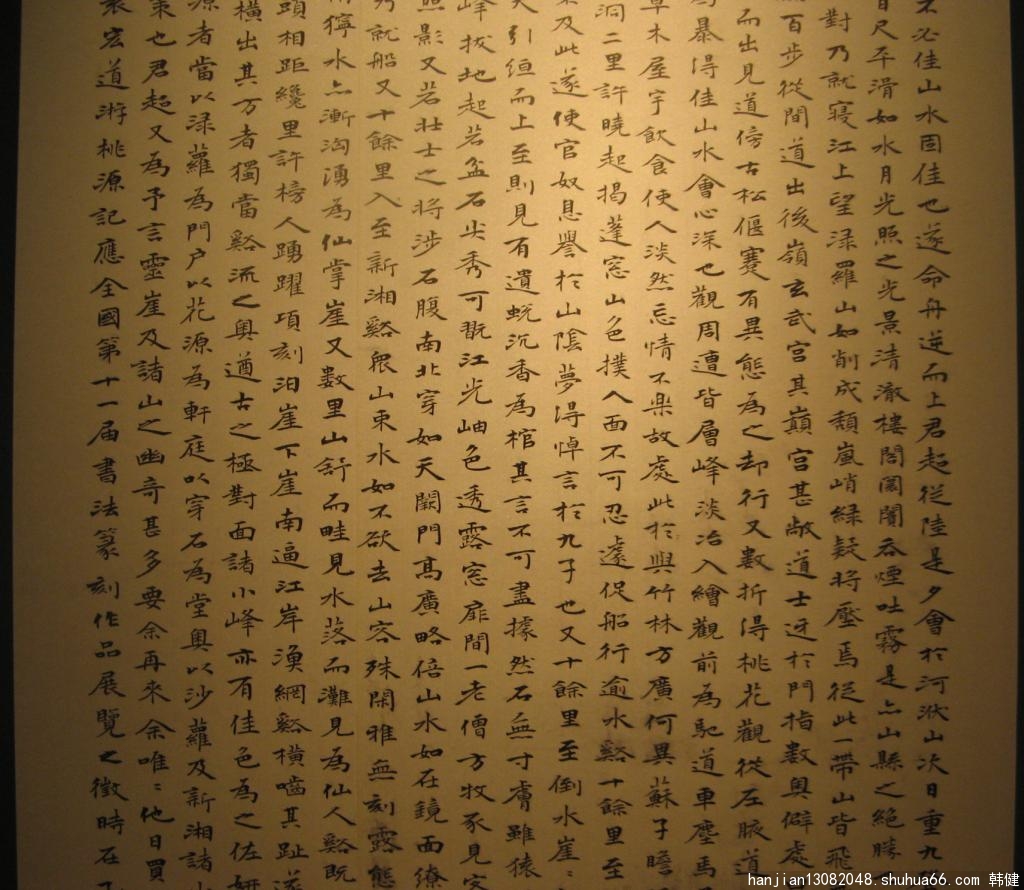 不必佳山水固佳也遂命舟逆而上君超從陸是夕會於河洑山次日重九
尺平滑如水月光照之光景清澈樓閣闤闠吞煙吐霧是亦山縣之絕勝
對乃就寢江上望淥羅山如削成頹嵐峭綠疑將壓焉從此一帶山皆飛
百步從間道出後嶺玄武宮其巔宮甚敞道士迓於門指數奧僻處
而出見道傍古松偃蹇有異態為之却行又數折得桃花觀從左腋道
暴得佳山水會心深也觀周遭皆層峰淡冶入繪觀前為馳道車塵馬
草木屋宇飲食使人淡然忘情不樂故處此於與竹林方廣何異蘇子瞻
洞二里許曉起揭蓬窓山色撲人面不可忍遽促船行逾水谿十餘里至
及此遂使官奴息譽於山陰夢得悼言於九子也又十餘里至倒水崖〻
引絙而上至則見有遺蛻沉香為棺其言不可盡據然石無寸膚雖猿
峰拔地起若盆石尖秀可翫江光岫色透露窓扉間一老僧方牧豕見客
照影又若壯士之將涉石腹南北穿如天闕門髙廣略倍山水如在鏡面繚
就船又十餘里入至新湘谿眾山束水如不欲去山容殊閑雅無刻露態
獰水亦漸洶湧為仙掌崖又數里山舒而畦見水落而灘見為仙人谿既
蹟相距纔里許榜人踴躍項刻泊崖下崖南逼江岸漁網谿橫嚙其趾遂
橫出其方者獨當谿流之奥遒古之極對面諸小峰亦有佳色為之佐妍
源者當以淥蘿為門户以花源為軒庭以穿石為堂奥以沙蘿及新湘諸
也君超又為予言靈崖及諸山之幽奇甚多要余再來余唯〻他日買
袁宏道游桃源記應全國第十一届書法篆刻作品展覽之徵時在
hanjian13082048. shuhua66. com 韩健